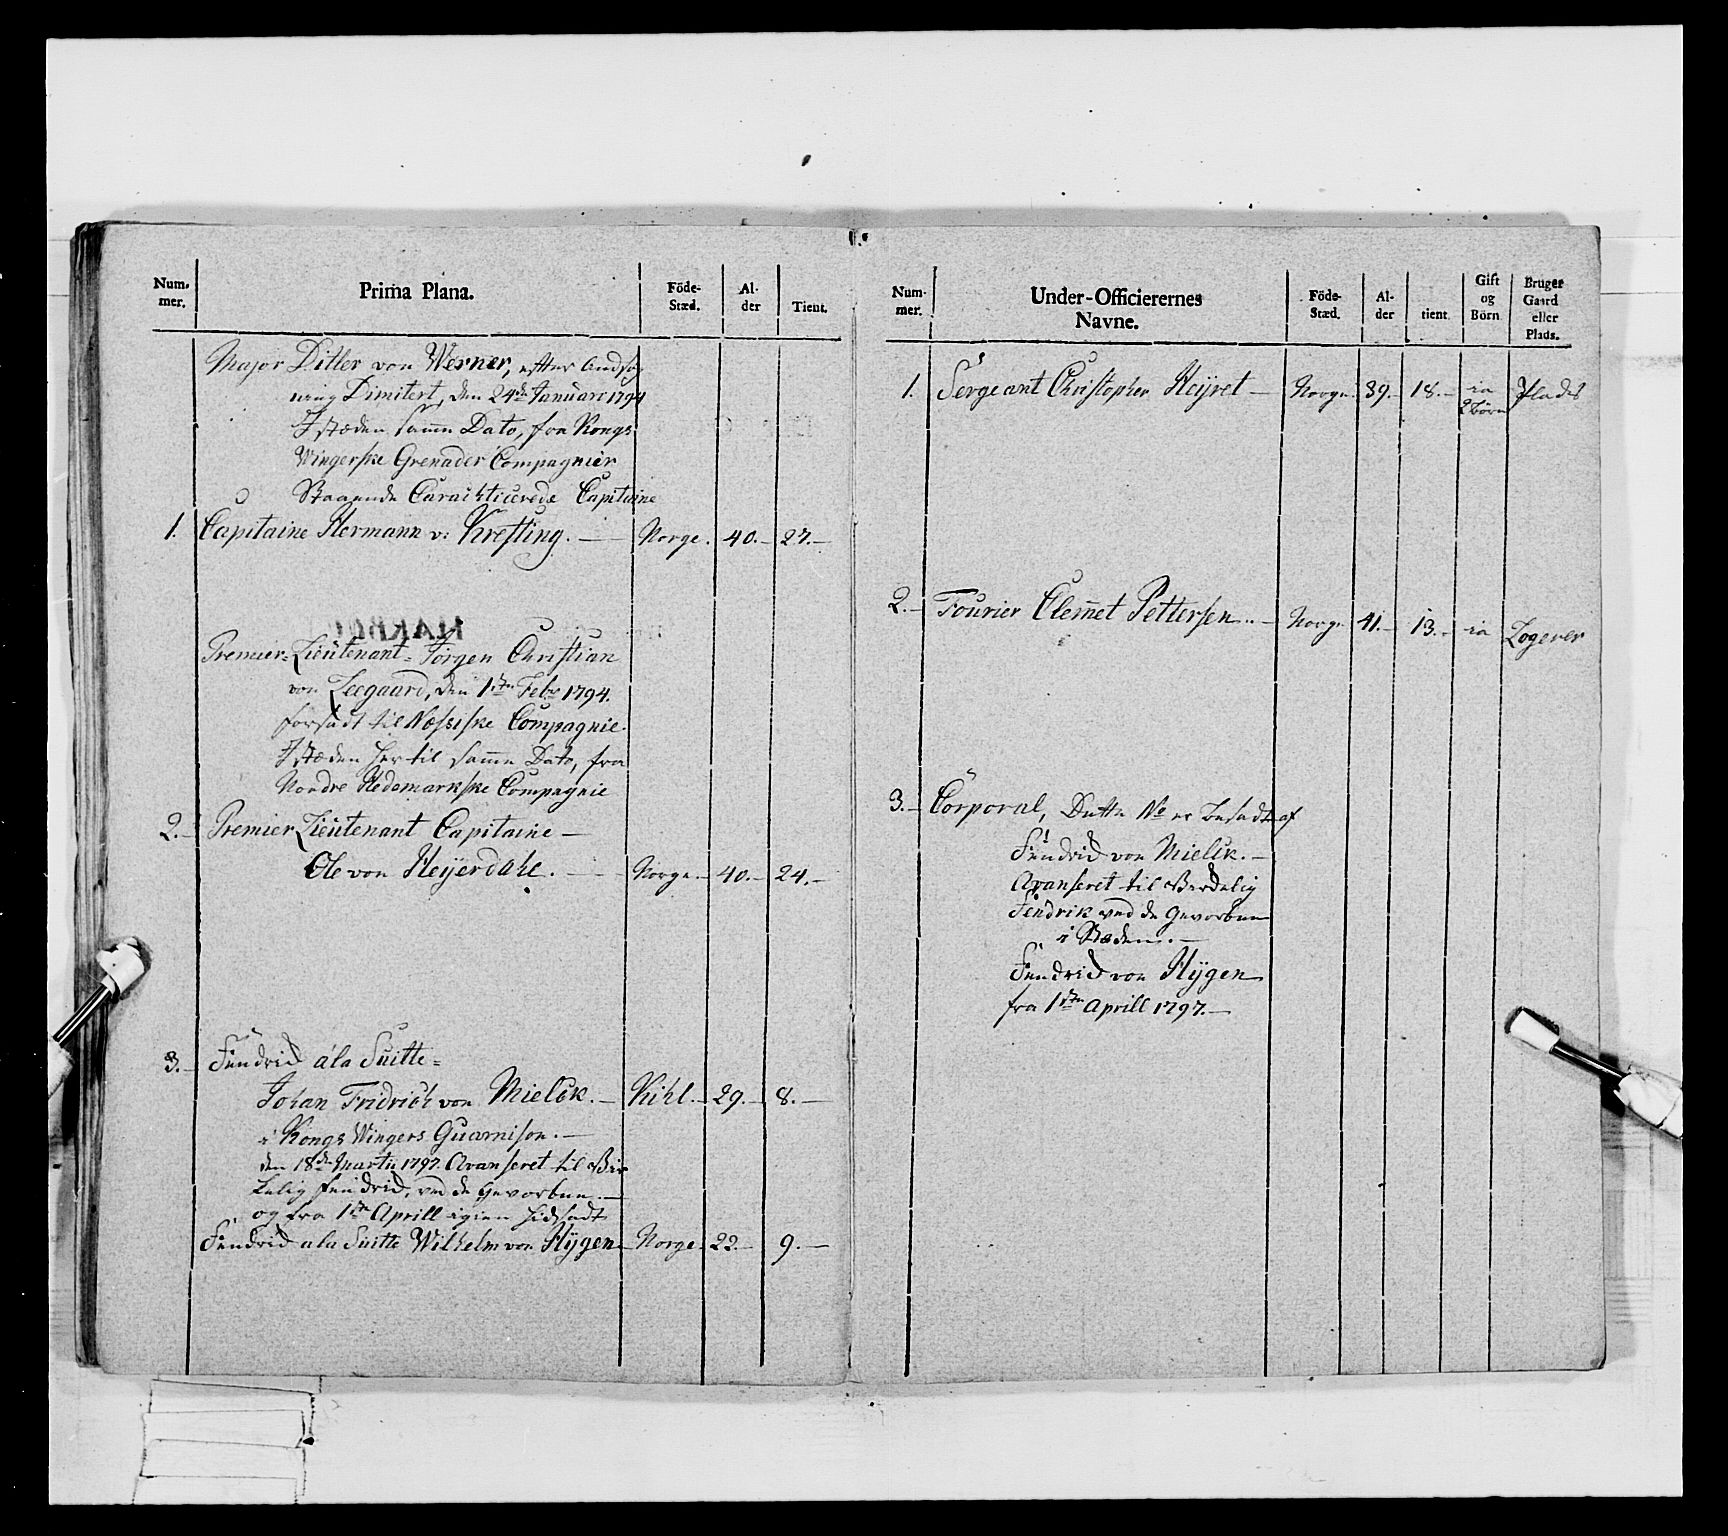 Num-
mer.
Prima Plana.
Föde-
Stæd.
Al-
der
Tient.
Major Ditler von Werner, efter Ansøg
ning Dimitert, den 24de Januari 1794
I stæden samme Dato, fra Kongs
Wingerske Grenader Compagnier
Staaende Carachticerede Capitaine
1. Capitaine Hermann v: Krefting. — Norge. 40. — 27. —
Premier-Lieutenant Jørgen Christian
von Zeegaard, den 1ste Febr 1794.
forsadt til Næssiske Compagnie.
I stæden her til samme Dato, fra
Nordre Hedemarkske Compagnie
2. — Premier Lieutenant Capitaine —
Ole von Heÿerdahl. — Norge. — 40. — 24. —
3. — Fendrich a la Suitte =
Johan Fridrich von Mielck. — Kihl. — 29. — 8. —
i Kongs Wingers Guarnison. —
den 18de Martii 1797. Avanseret til Vir
kelig fendrich, ved de gevorbne. —
og fra 1ste Aprill igien hidsadt
Fendrich a la Suitte Wilhelm von Hÿgen — Norge 22. — 9. —
Num-
mer.
Under-Officierernes
Navne.
Föde-
Stæd.
Al-
der
tient.
Gift
og
Börn
Bruger
Gaard
eller
Plads.
1. Sergeant Christopher Heÿret — Norge 39. — 18. — ia
2 børn
Plads
2. — Fourier Clemet Pettersen. — Norge 41. — 13. — ia Logerer
3. — Corporal, Dette No er besadt af
Fendrich von Mielck. —
Avanseret til Virkelig
Fendrik ved de gevorbne
i Stæden. —
Fendrich von Hÿgen
fra 1ste Aprill 1797. —